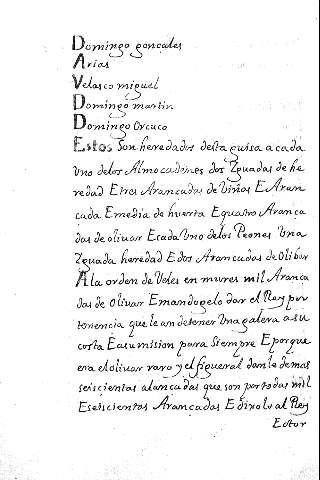 Domingo gonçales
Arias
Velasco miguel
Domingo martin
Domingo Orcuco
Estos Son heredados desta guisa a cada
Uno delos Almocadenes dos Yguadas de he
redad Etres Arancadas de Viñas E Aran
cada Emedia de huerta Equatro Arança
das de olivar Ecada Uno delos Peones Una
Yguada heredad Edos Arancadas de Olibar
A la orden de Veles en mures mil Arança
das de Olivar Emandogelo dar el Rey por
tenencia que le an detener Una galera a su
costa Easumision para Siempre Eporque
era el olivar raro y el figueral danle demas
seiscientas alancadas que son portodas mil
Eseiscientas Arancadas Edixolo al Rey
Estor